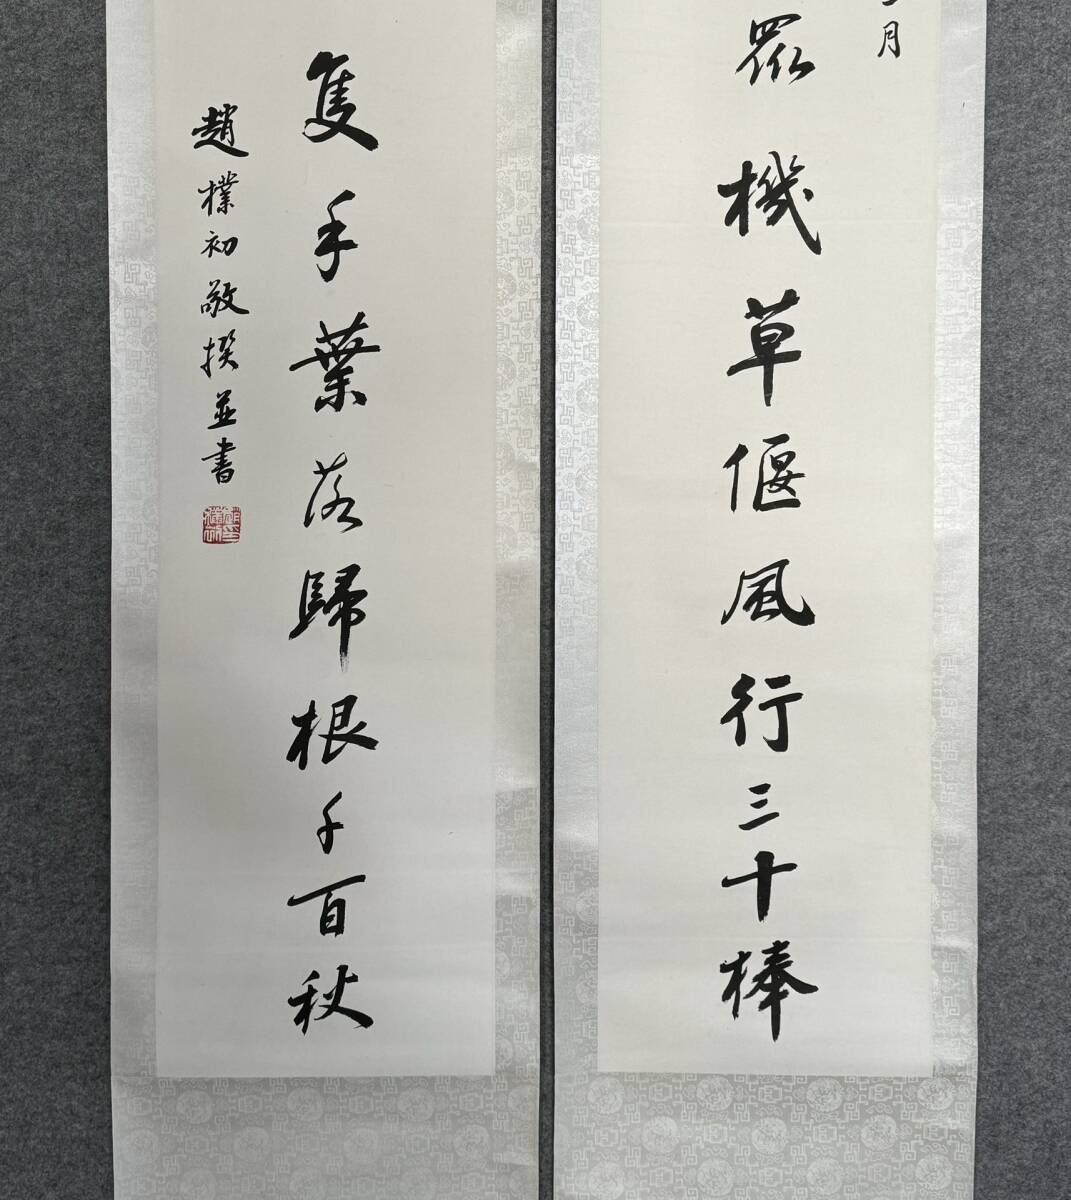 月
眾機草偃風行三十棒
隻手葉落歸根千百秋
趙樸初敬撰並書